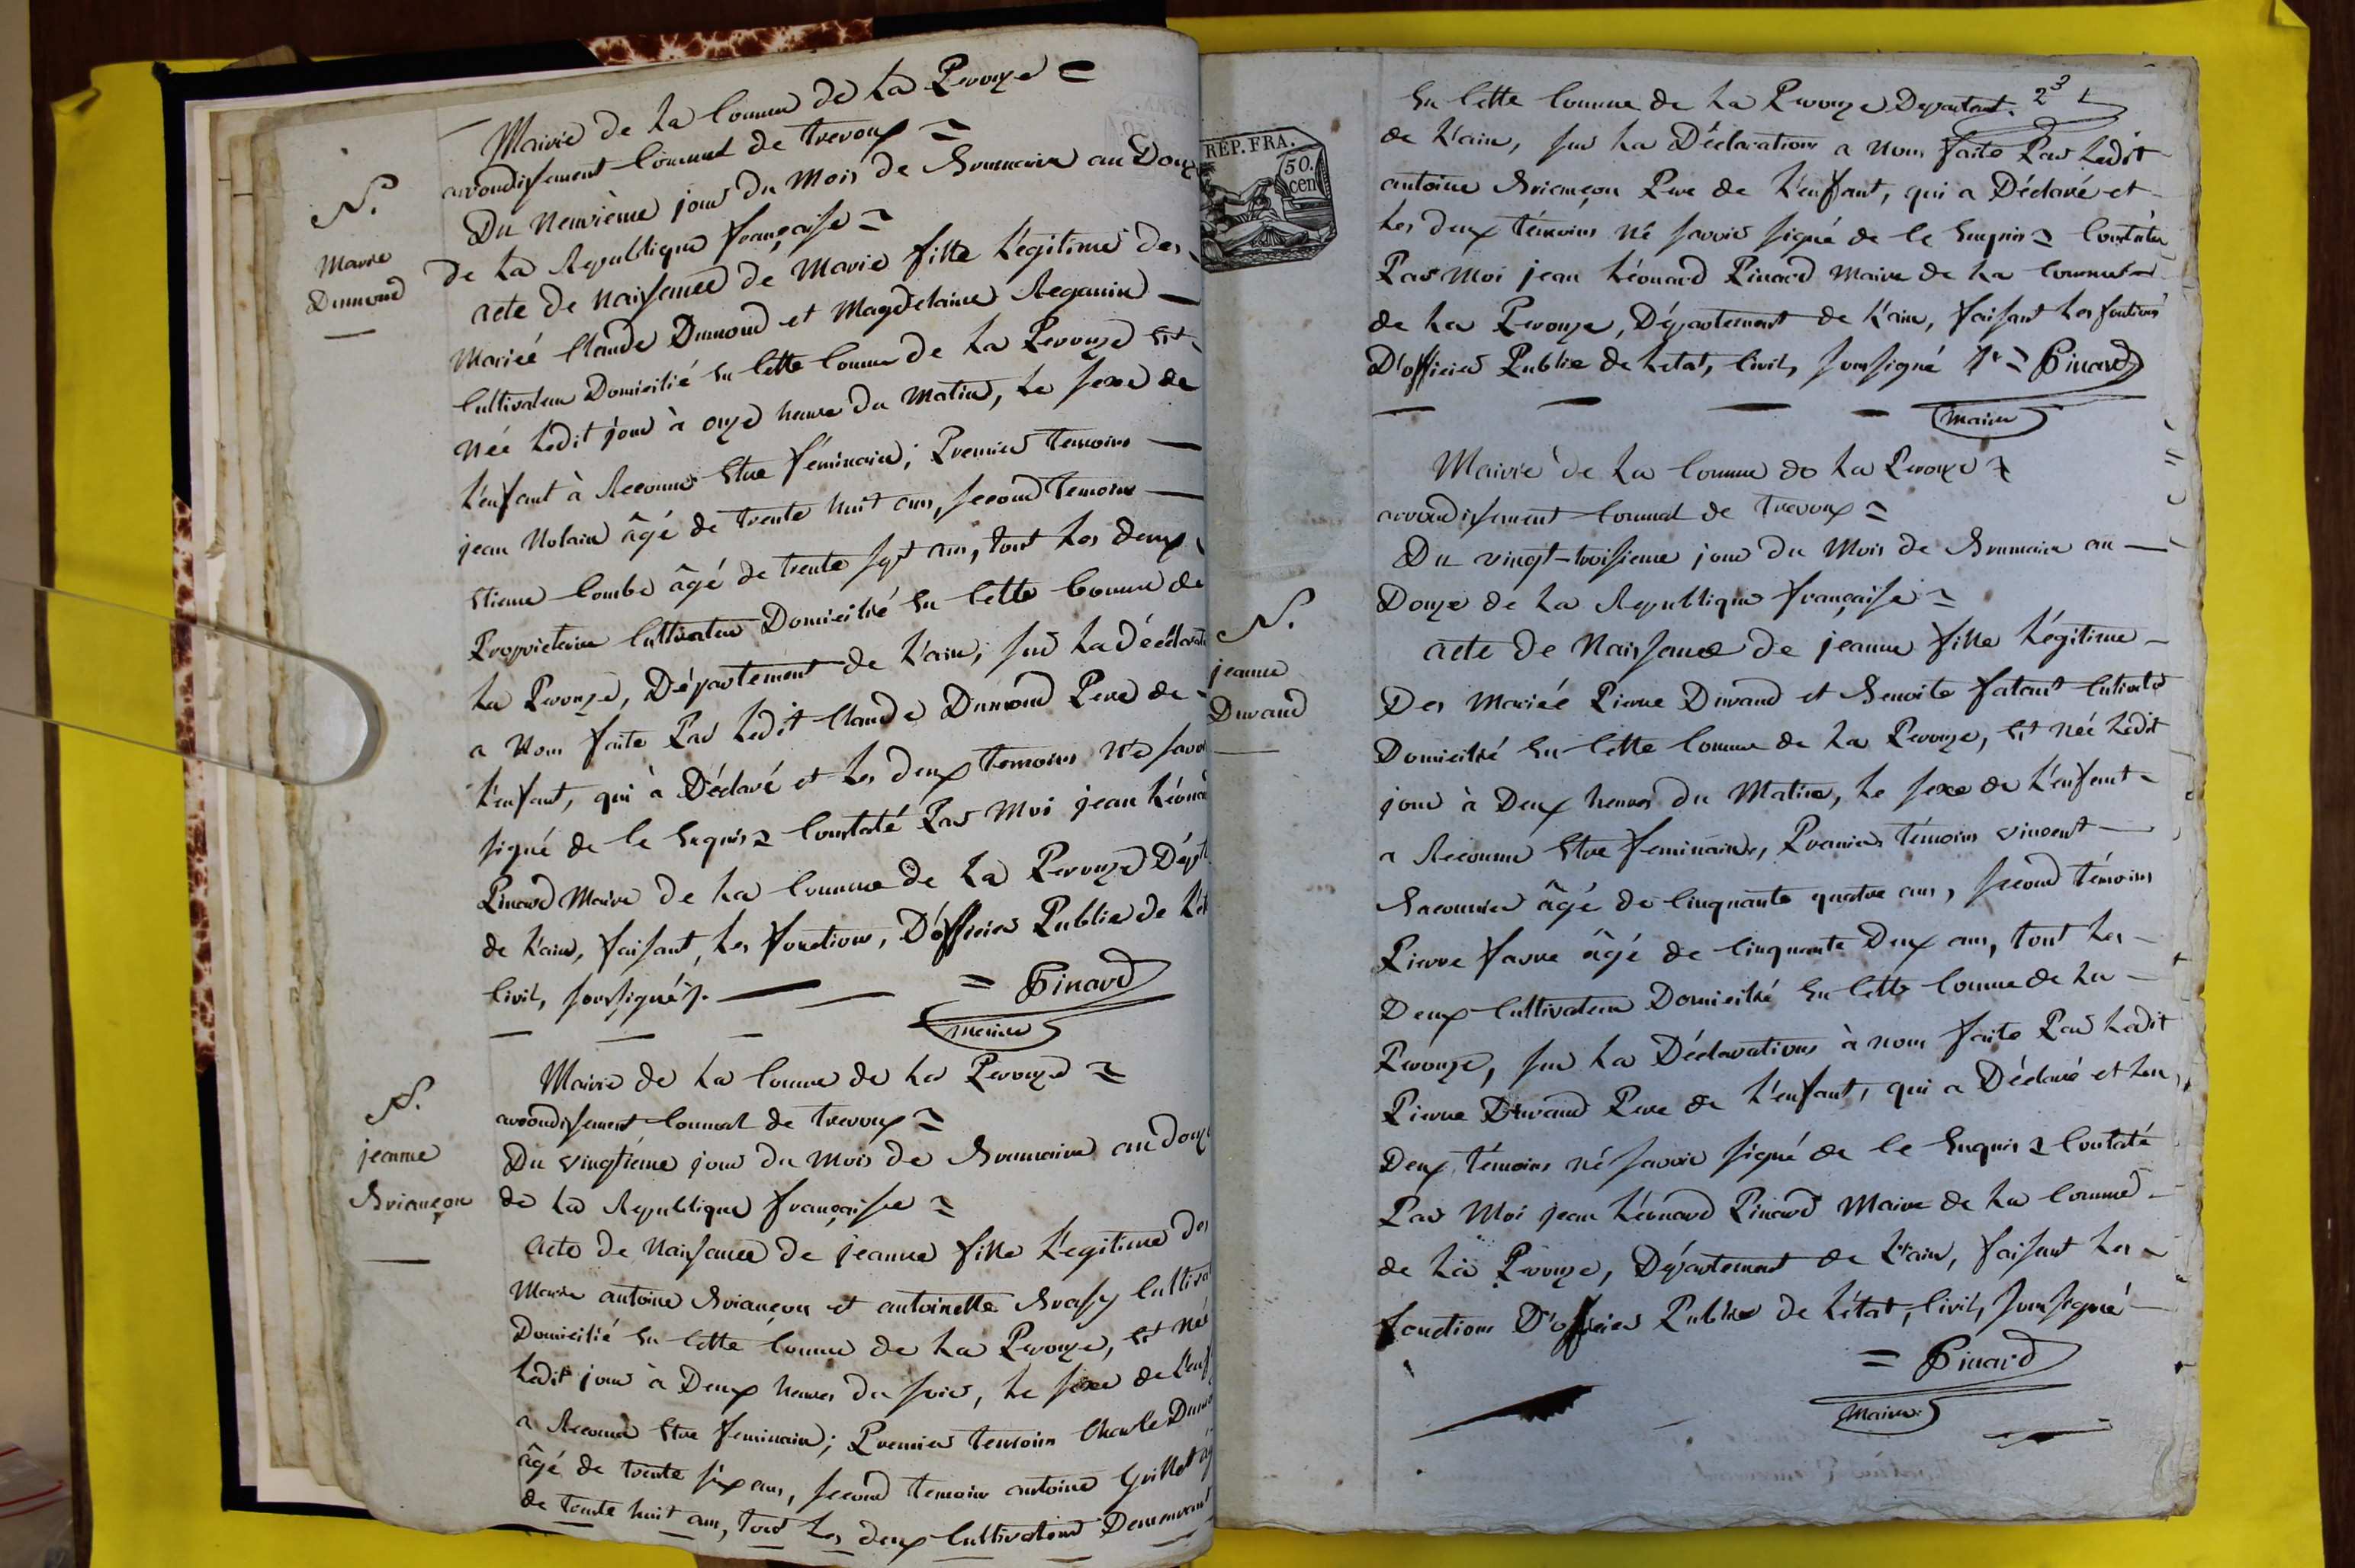 Mairie de La Comune de La Perouze =
arrondissement Comunal de trevoux =
Du Neuvième jour du Mois de Brumaire an Douz
de La Republique française =
N.
Marie
Dumond
acte de Naissance de Marie fille Légitime des
Mariéé Claude Dumond et Magdelaine
Cultivateur Domicilié En Cette Comune de La Perouze Est
Née Ledit jour à onze heure du Matin, Le sexe de
L'enfant à Reconnu Etre féminin; Premier temoins
jean âgé de trente huit ans, second temoins
Etiene Combe âgé de trente sept ans, tout Les deux
Proprietaire Cultivateur Domicilié En Cette Comune de
La Perouze, Département de L'ain, sur La déclarati
a Nous faite Par Ledit Claude Dumond Pere de
L'enfant, qui à Déclaré et Les deux temoins Ne savoi
signé de Ce Enquis = Constaté Par Moi jean Léonar
Pinard Maire de La Commune de La Perouze Dépt
de L'ain, faisant, Les fonctions, D'officier Public de L'ét
Civil, soussigné /. = Pinard
maire
Mairie de La Comune de La Perouze =
arrondissement Comunal de trevoux =
Du vingtième jour du Mois de Brumaire an douze
de La Republique française =
N.
jeanne
Briançon
acte de Naissance de jeanne fille Légitime des
Marie antoine Briançon et antoinette Cultivat
Domicilié En Cette Comune de La Perouze, Est Née
Ledit jour à Deux heures du soir, Le sexe de L'enf
a Reconnu Etre feminin; Premier temoins Charle Dumo
âgé de trente six ans, second temoins antoine Guillot ag
de trente huit ans, tout Les deux Cultivateur Demeurant
REP. FRA.
50.
cen
En Cette Comune de La Perouze Departemt.
de L'ain, sur La Déclaration a Nous faite Par Ledit
antoine Briançon Pere de L'enfant, qui a Déclaré et
Les deux témoins Né savoir signé de Ce Enquis = Constaté
Par Moi jean Léonard Pinard Maire de La Commune
de La Perouze, Département de L'ain, faisant Les fontions
D'officier Public de Letat, Civil, soussigné = Pinard
maire
Mairie de La Comune de La Perouze =
arrondissement Comunal de Trevoux =
Du vingt-troisieme jour du Mois de Brumaire an
Douze de La Republique française =
N.
jeanne
Durand
acte de Naissance de jeanne fille Légitime
Des Mariéé Pierre Durand et Benoite
Domicilié En Cette Comune de La Perouze, Est Née Ledit
jour à Deux heures du Matin, Le sexe de L'enfant
a Reconnu Etre feminin, Premier témoins vincent
âgé de Cinquante quatre ans, second témoins
Pierre favre âgé de Cinquante Deux ans, tout Les
Deux Cultivateur Domicilié En Cette Comune de La
Perouze, sur La Déclarations à nous faite Par Ledit
Pierre Durand Pere de L'enfant, qui a Déclaré et Les
Deux témoins né savoir signé de Ce Enquis = Constaté
Par Moi jean Léonard Pinard Maire de La Commune
de La Perouze, Département de L'ain, faisant Les
fonctions D'officier Public de L'état, Civil, soussigné
= Pinard
Maire